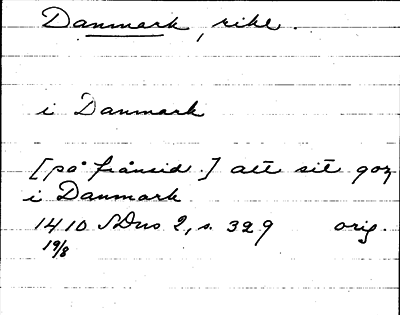 Danmark, rike.
i Danmark
[på frånsid.] att sit goz
i Danmark
1410 SDns 2, s. 329 orig.
19/8